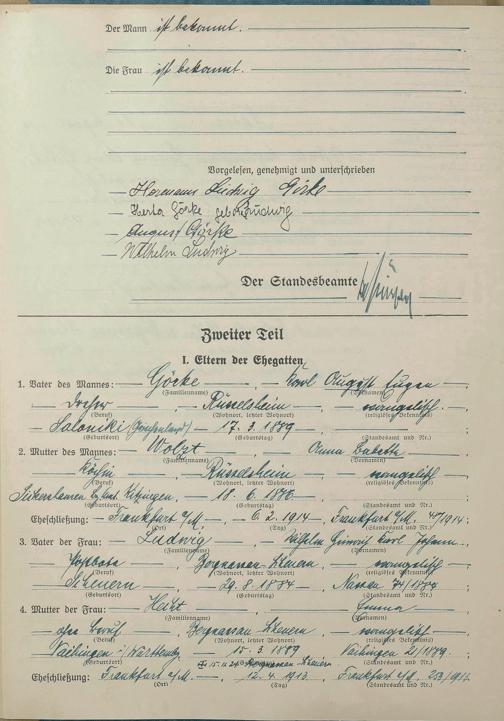 Der Mann ist bekannt.
Die Frau ist bekannt.
Vorgelesen, genehmigt und unterschrieben
Hermann Ludwig Görke
Herta Görke geb. Ludwig
August Görke
Wilhelm Ludwig
Der Standesbeamte
Zweiter Teil
I. Eltern der Ehegatten
1. Vater des Mannes: Görke, Karl August Eugen
(Familienname) (Vornamen)
Dreher, Rüsselsheim, evangelisch
(Beruf) (Wohnort, letzter Wohnort) (religiöses Bekenntnis)
Saloniki (Griechenland) 17. 3. 1889
(Geburtsort) (Geburtstag) (Standesamt und Nr.)
2. Mutter des Mannes: Anna Babette
(Familienname) (Vornamen)
Köchin, Rüsselsheim, evangelisch
(Beruf) (Wohnort, letzter Wohnort) (religiöses Bekenntnis)
Kitzingen, 18. 6.
(Geburtsort) (Geburtstag) (Standesamt und Nr.)
Eheschließung: Frankfurt a/M. 6. 2. 1914, Frankfurt a/M.
(Ort) (Tag) (Standesamt und Nr.)
3. Vater der Frau: Ludwig, Wilhelm Heinrich Karl Johann
(Familienname) (Vornamen)
Bergnassau-Scheuern evangelisch
(Beruf) (Wohnort, letzter Wohnort) (religiöses Bekenntnis)
Scheuern 29. 8. 1884 Nassau
(Geburtsort) (Geburtstag) (Standesamt und Nr.)
4. Mutter der Frau: Emma
(Familienname) (Vornamen)
ohne Beruf, Bergnassau-Scheuern evangelisch
(Beruf) (Wohnort, letzter Wohnort) (religiöses Bekenntnis)
Vaihingen / Württembg. 15. 3. 1889 Vaihingen 21/1889.
(Geburtsort) (Geburtstag) (Standesamt und Nr.)
Bergnassau-Scheuern
Eheschließung: Frankfurt a/M. 12. 4. 1913. Frankfurt a/M.
(Ort) (Tag) (Standesamt und Nr.)